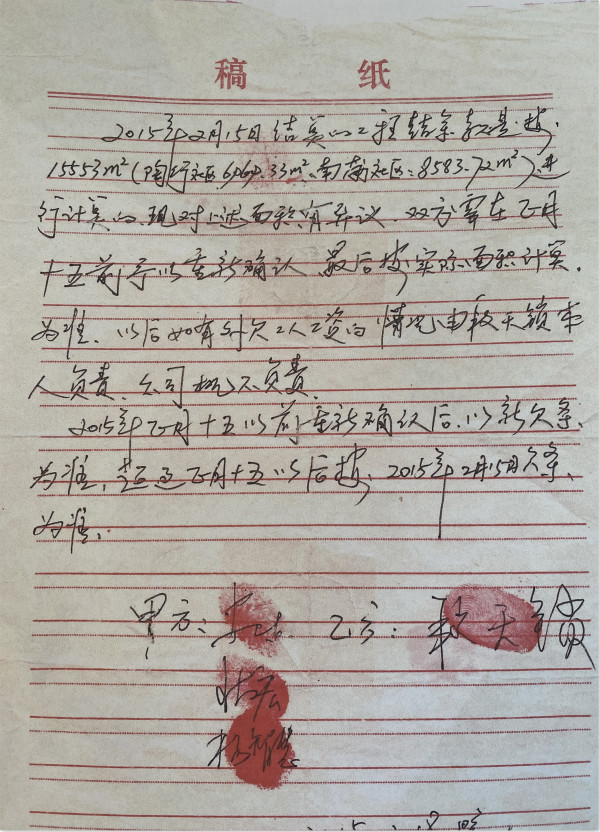 稿 纸
2015年2月15日结算的工程结余款是按
15553m²(陶行社区6969.33m²、南蔡社区:8583.72m²)进
行计算的、现对上述面积有异议、双方需在正月
十五前予以重新确认 最后按实际面积计算.
为准、以后如有外欠工人工资的情况由 天锁本
人负责、公司概不负责.
2015年正月十五以前重新确认后、以新欠条
为准,超过正月十五以后按、2015年2月15日欠条、
为准.
甲方: 乙方: 天锁